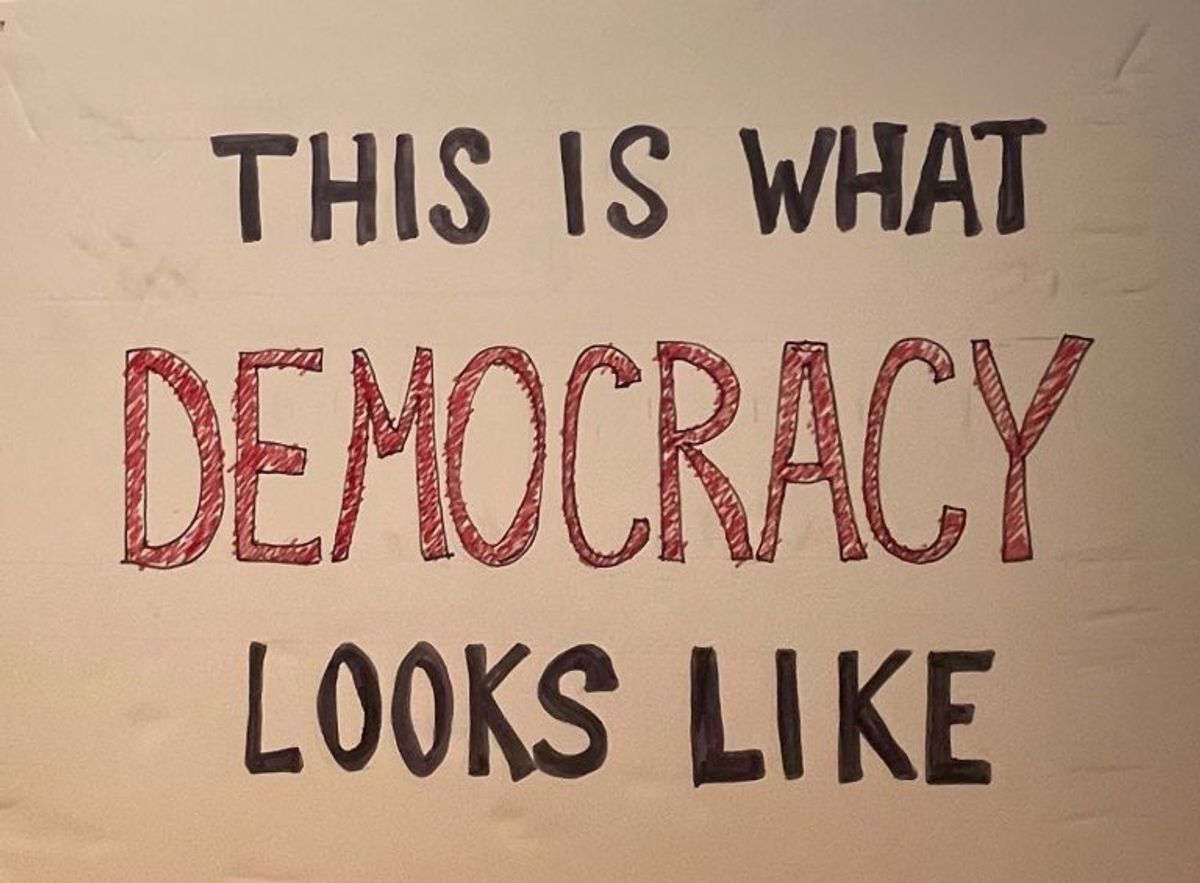 THIS IS WHAT
DEMOCRACY
LOOKS LIKE